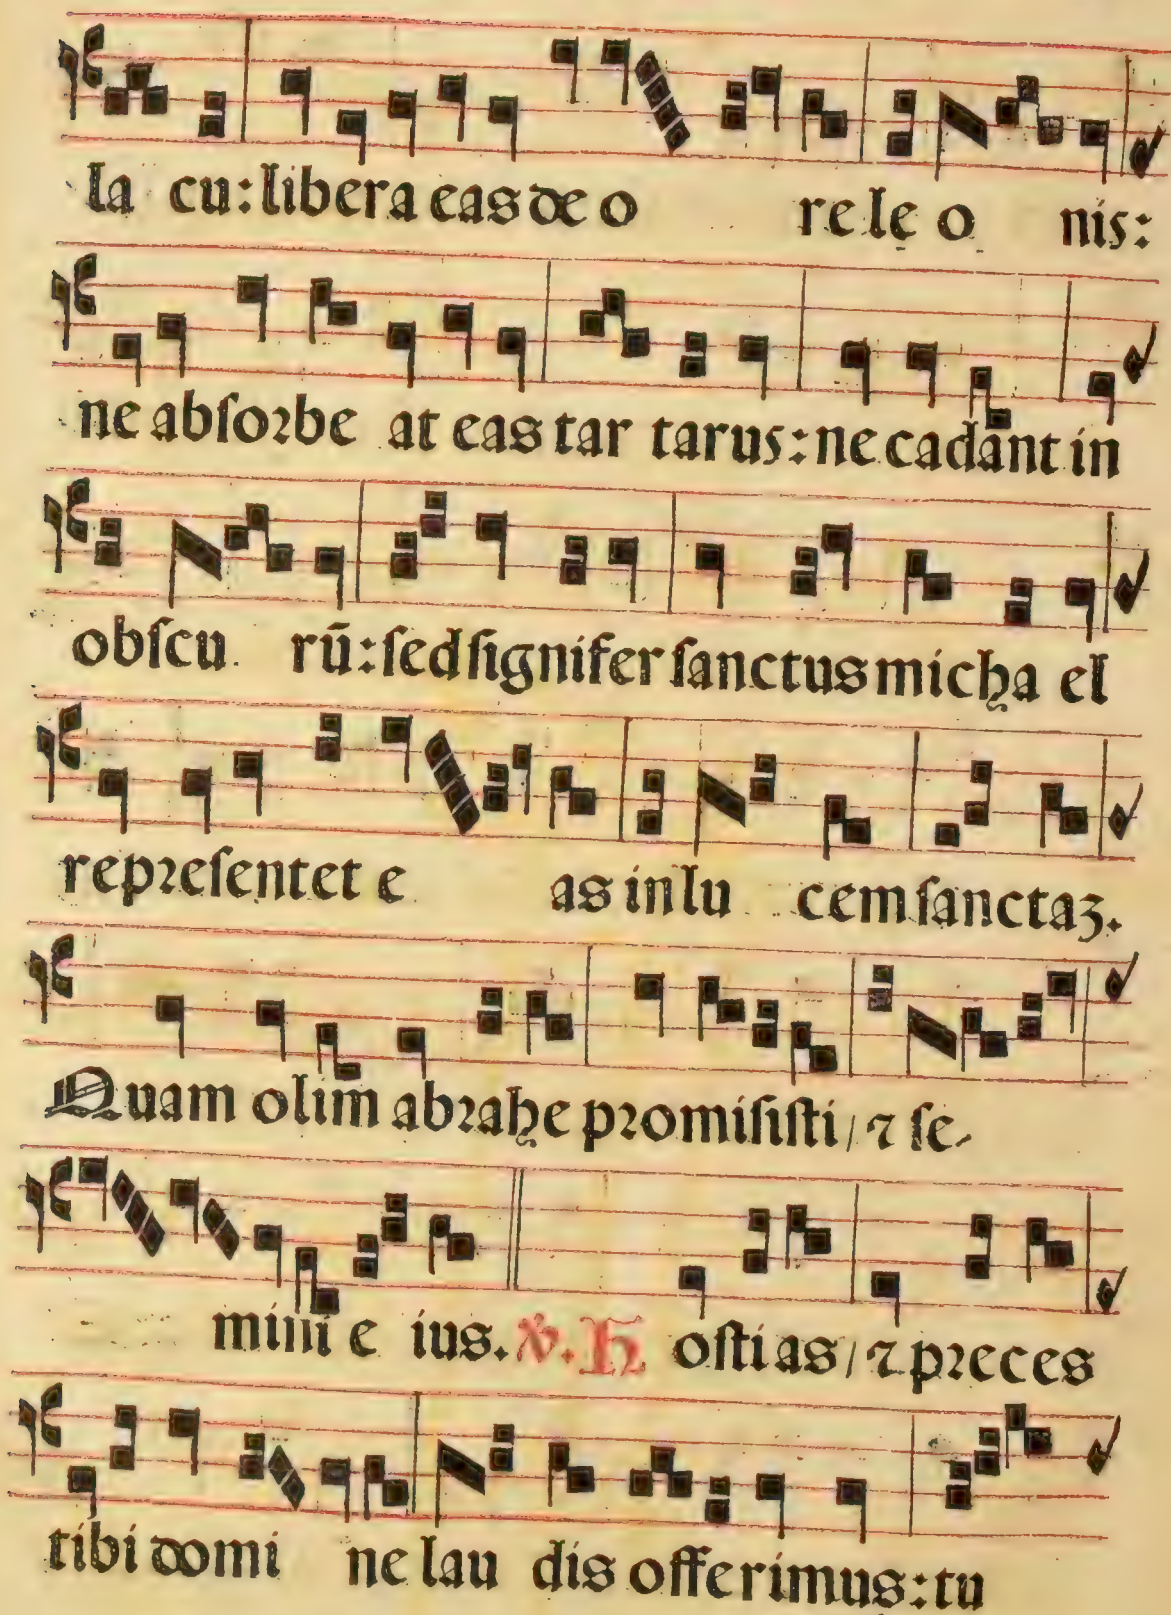 la cu: libera eas de o re le o nis:
ne abſoꝛbe at eas tar tarus: ne cadant in
obſcu rū: ſed ſignifer ſanctus micha el
repꝛeſentet e as in lu cem ſanctaꝫ.
Quam olim abꝛahe pꝛomiſiſti / ⁊ ſe-
mini e ius. ℣. H oſtias / ⁊ pꝛeces
tibi domi ne lau dis offerimus: tu